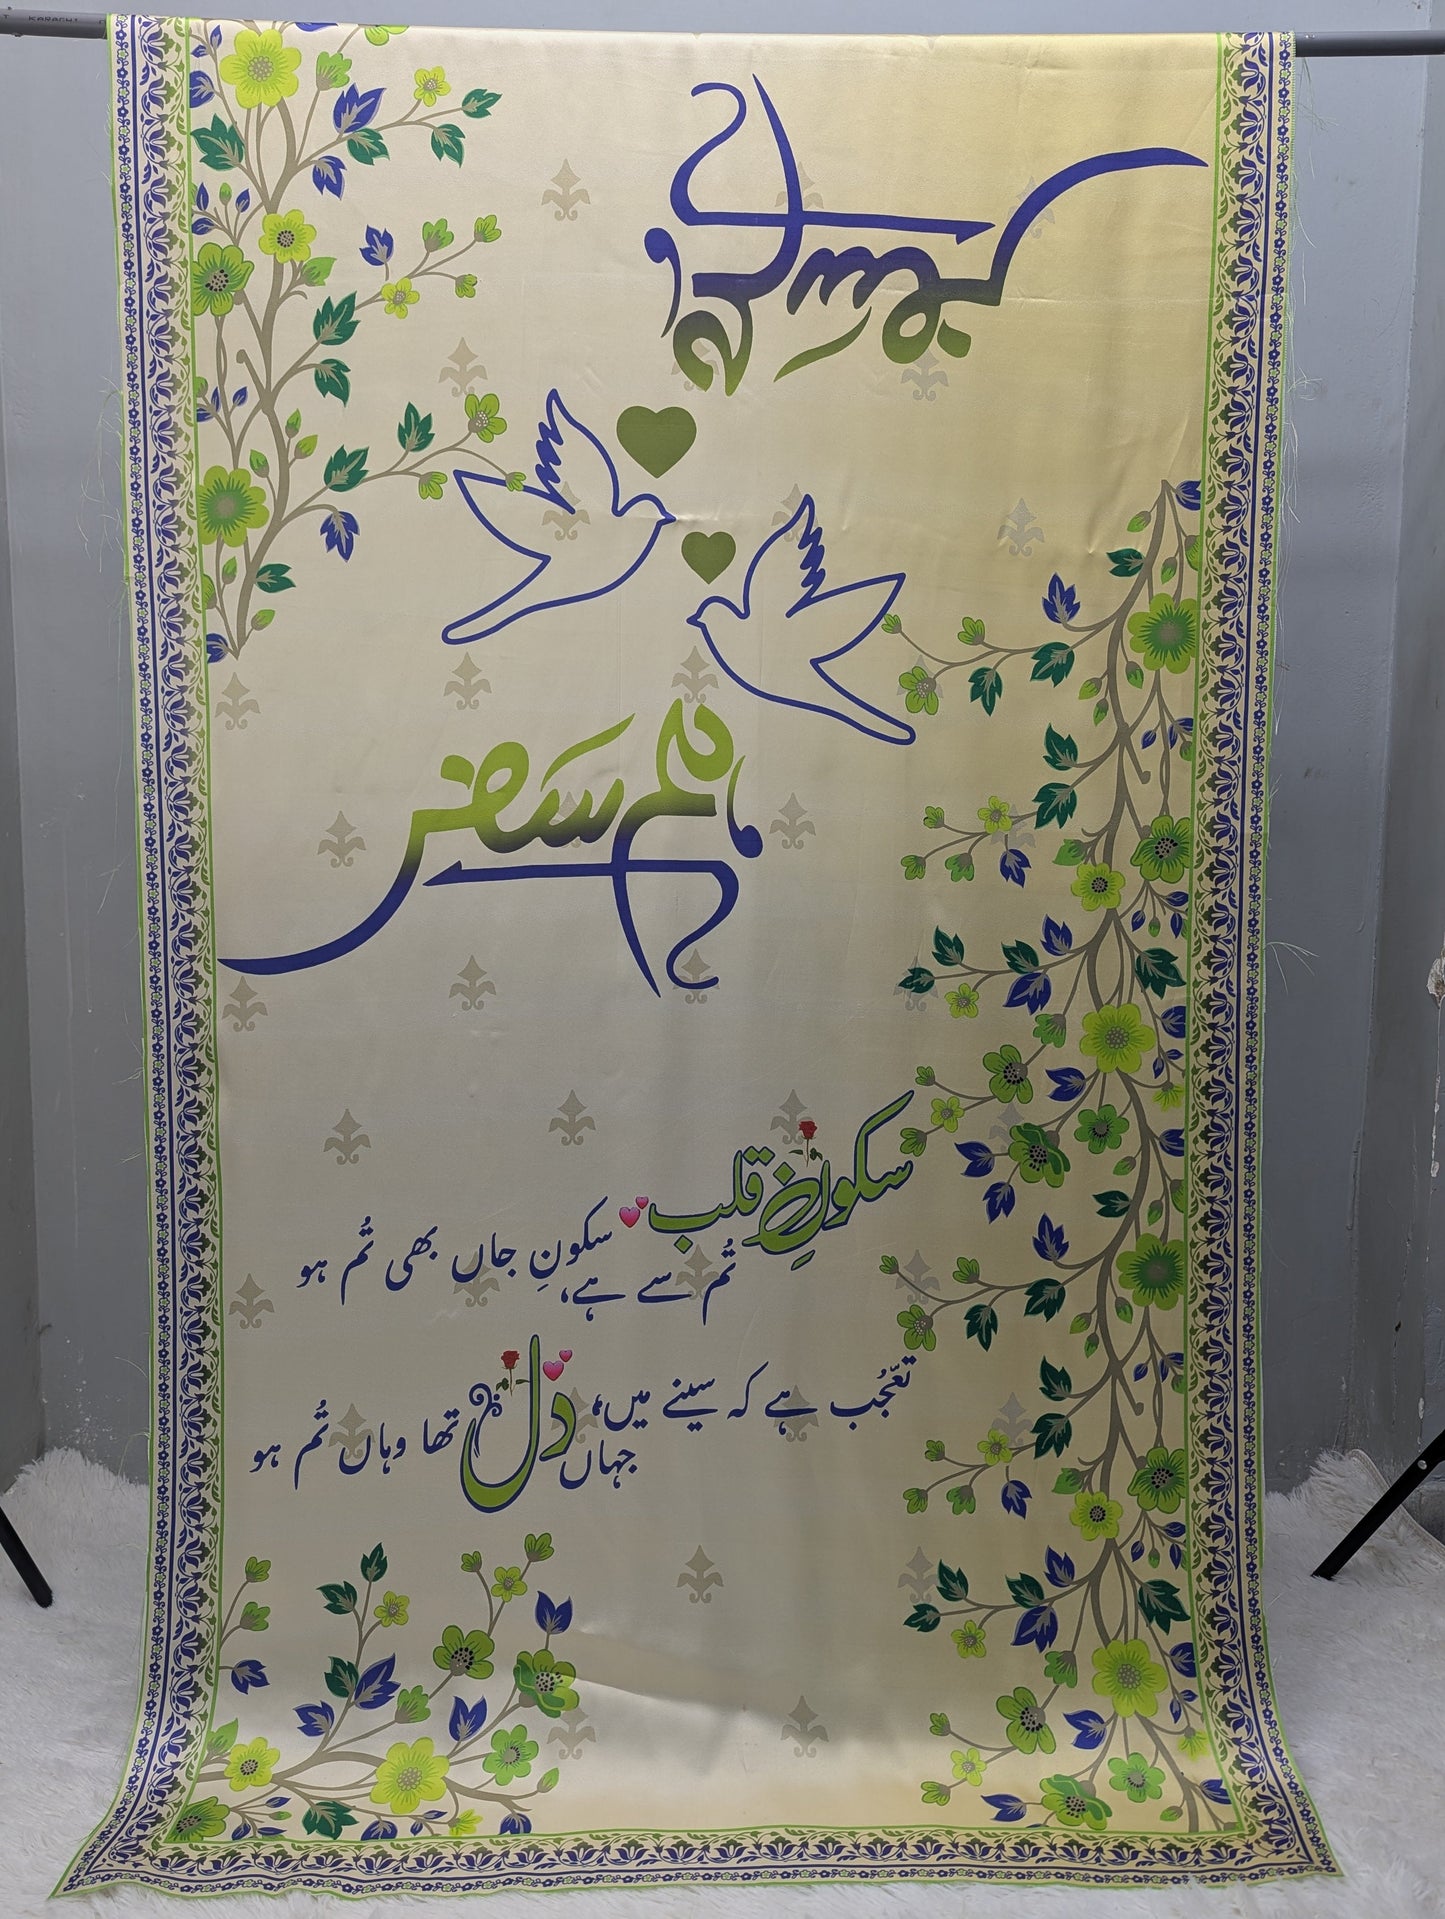 KARACHI
ہم سفر
ہم سفر
سکونِ قلب تُم سے ہے، سکونِ جاں بھی تُم ہو
تعّجُب ہے کہ سینے میں، جہاں دل تھا وہاں تُم ہو